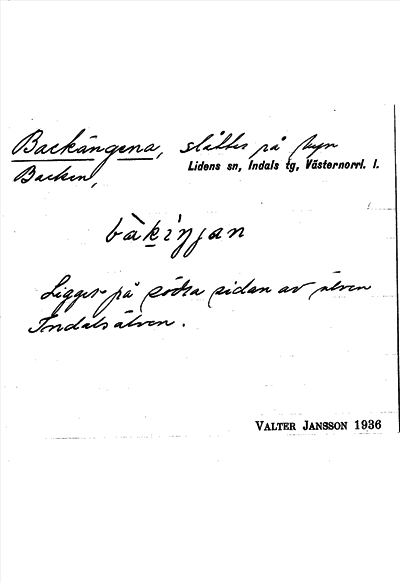 Backängena, slåtter på byn
Backen,
Lidens sn, Indals tg, Västernorrl. l.
bàkiŋjan
Ligger på södra sidan av älven
Indalsälven.
VALTER JANSSON 1936